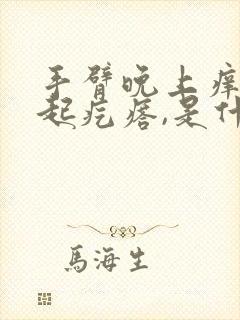 手臂晚上痒
起疙瘩,是什
馬海生